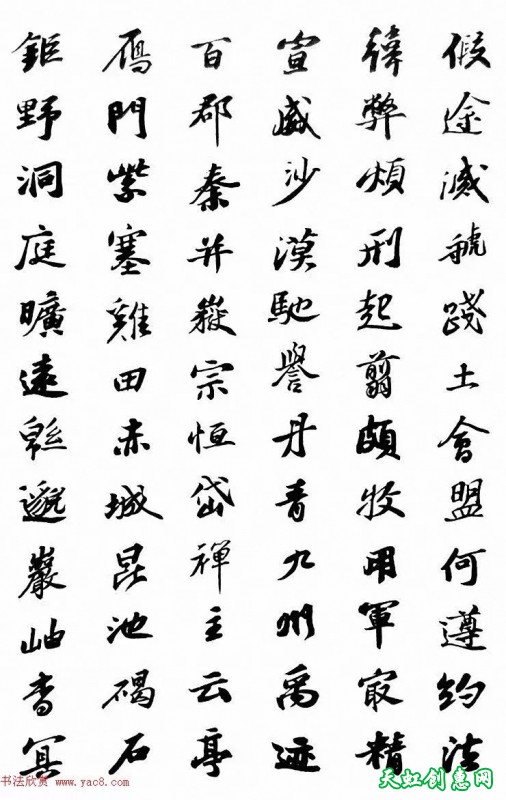 假途滅虢踐土會盟何遵約法
韓弊煩刑起翦頗牧用軍最精
宣威沙漠馳譽丹青九州禹迹
百郡秦并嶽宗恒岱禪主云亭
雁門紫塞雞田赤城昆池碣石
鉅野洞庭曠遠綿邈巖岫杳冥
书法欣赏 www.yac8.com
天虹创惠网